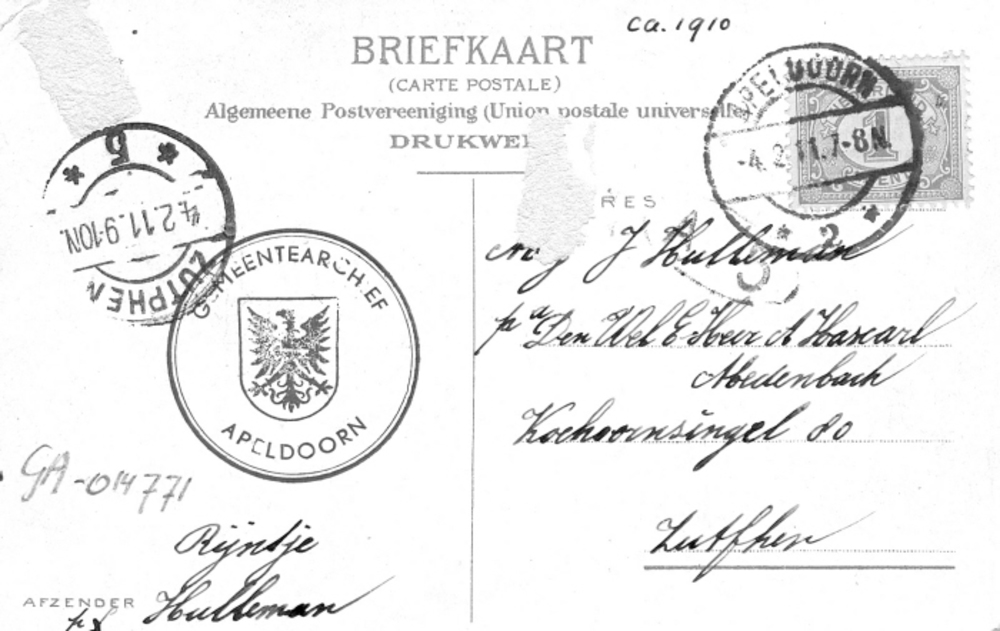 ca. 1910
BRIEFKAART
(CARTE POSTALE)
Algemeene Postvereeniging (Union postale universelle)
DRUKWE
APELDOORN
-4.2.11.7-8N.
2
1
CENT
5
4.2.11.9-10N
ZUTPHEN
GEMEENTEARCHIEF
APELDOORN
GA-014771
Rijntje
AFZENDER Hulleman
RES
J Hulleman
p/a Den Wel E Heer A Hascarl
Medenbach
Kochoornsingel 80
Zutfhen